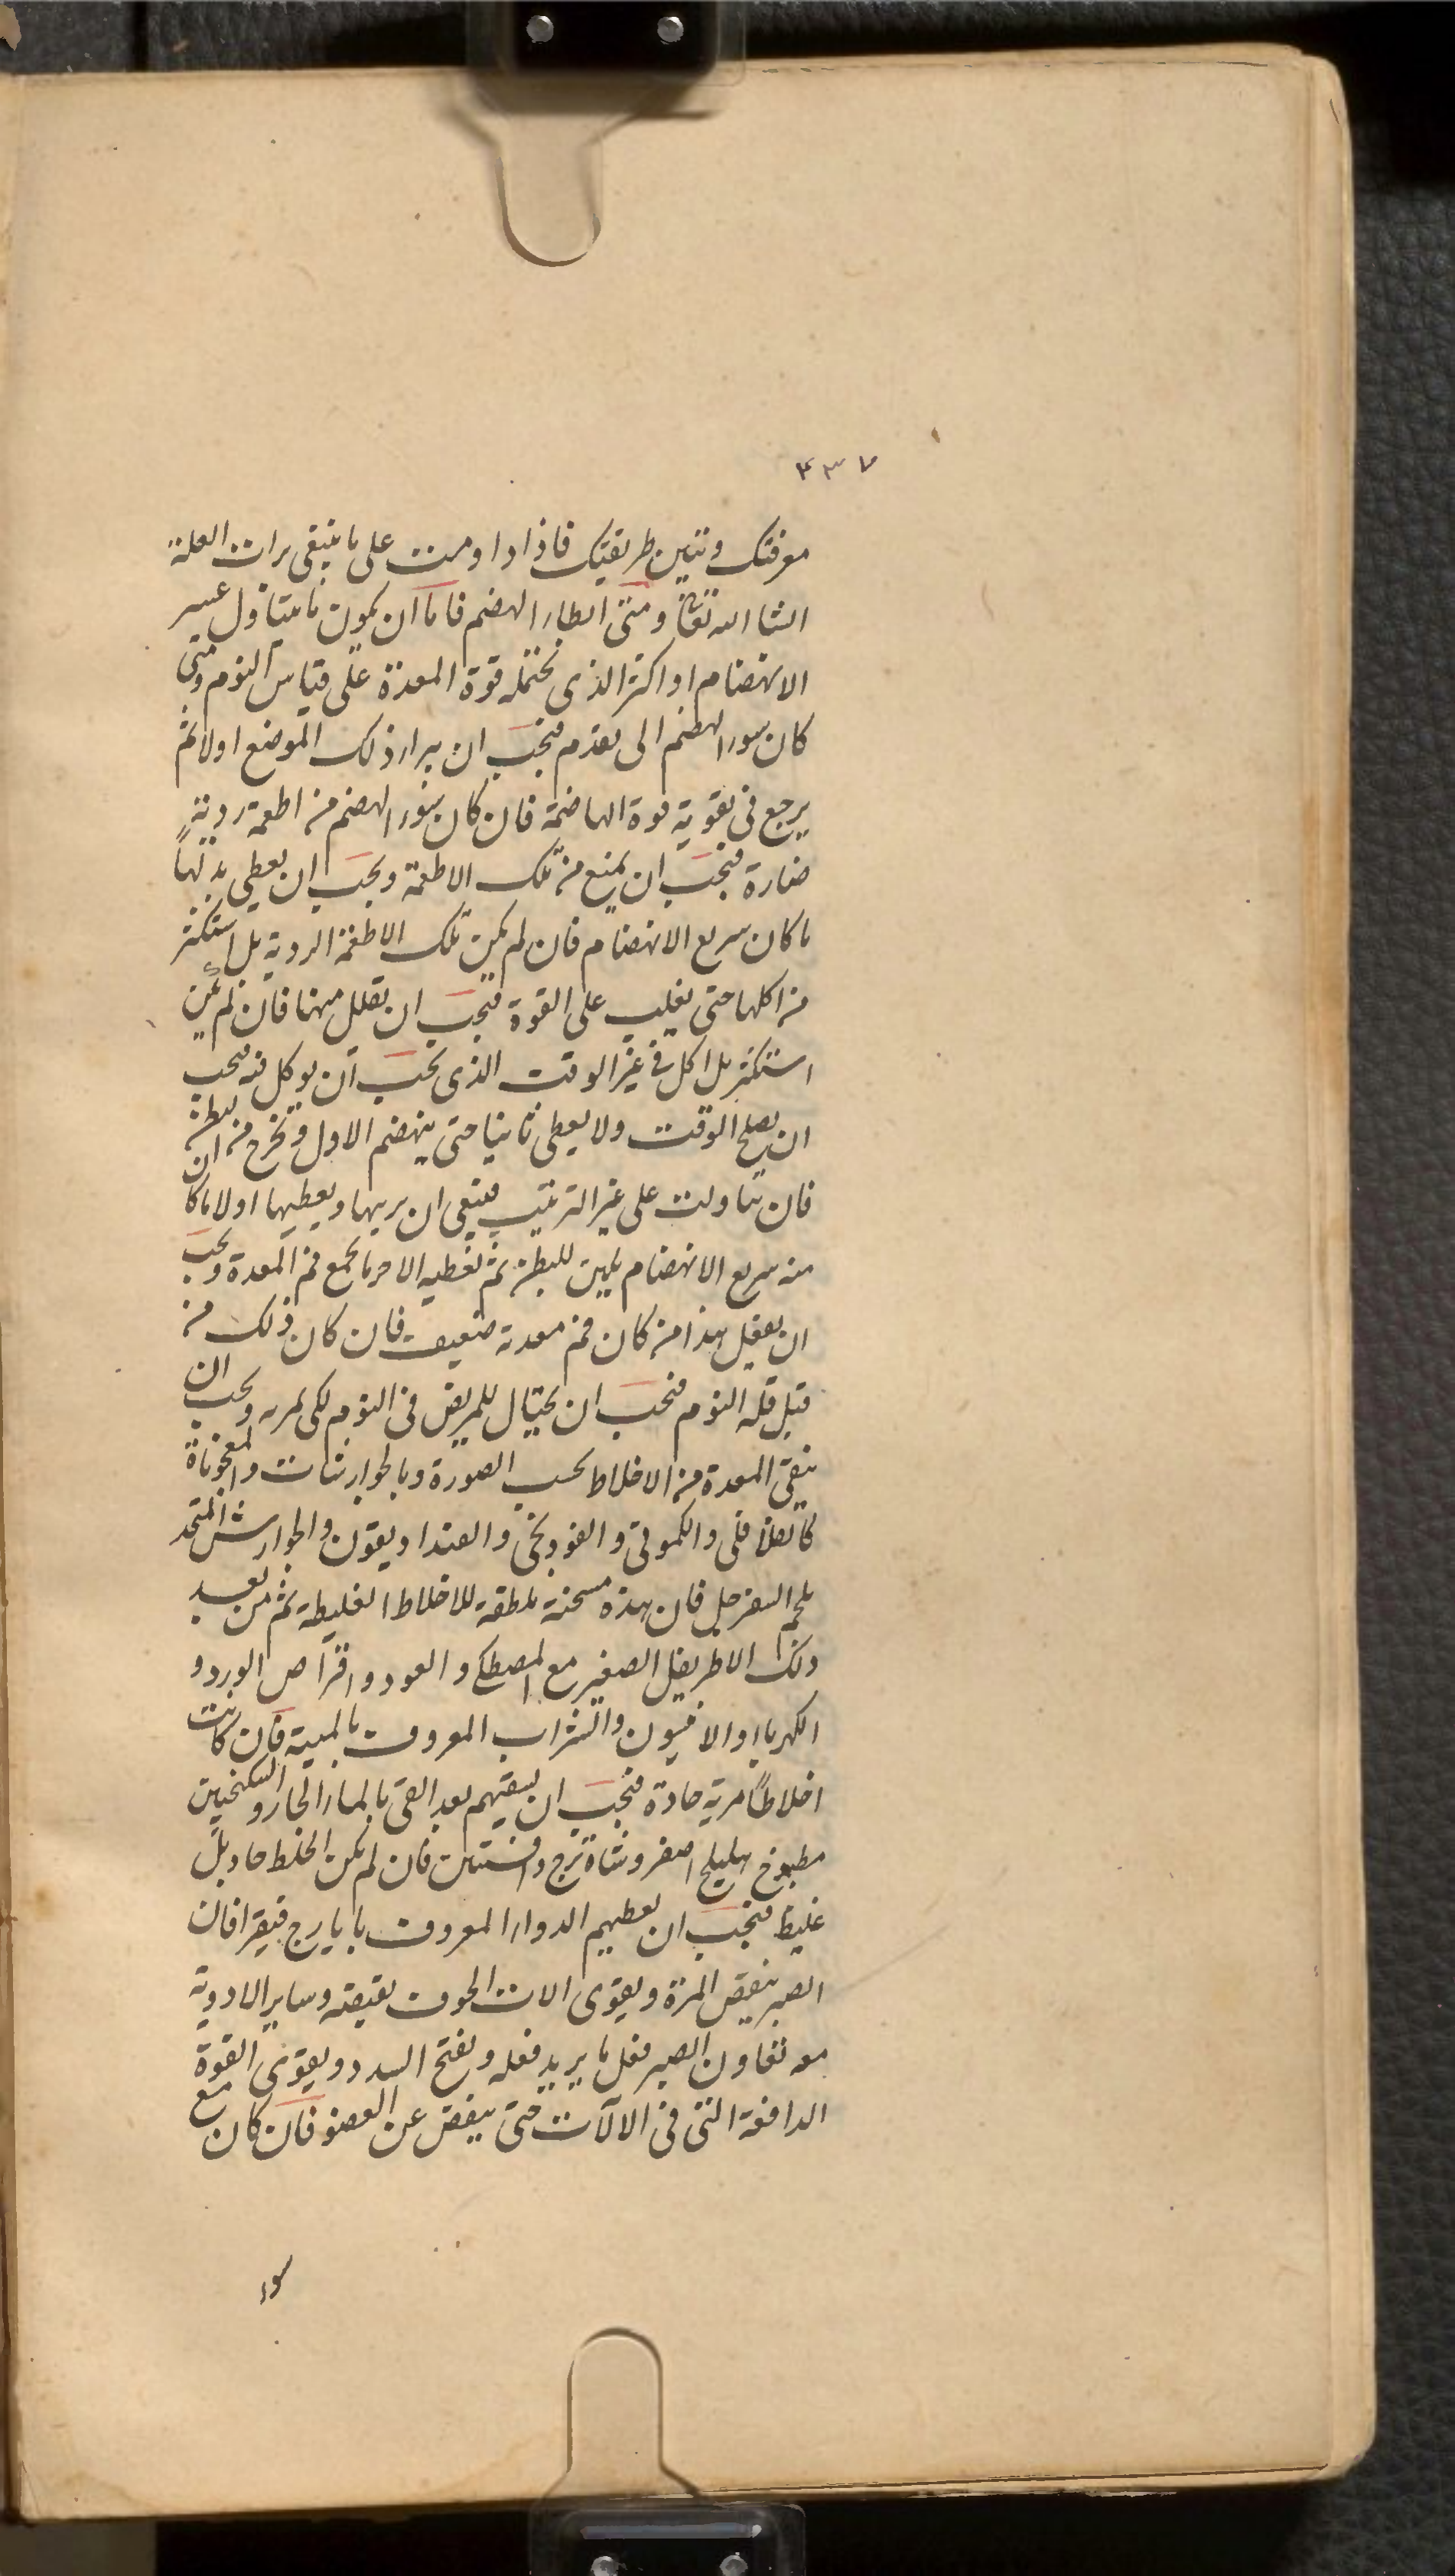 ۴۳۷
معرفتك وتتبين طريقتك فاذا داومت على ما ينبغى برات العلة
انشا الله تعالى ومتى ابطاء الهضم فاما ان يكون ما يتناول عسر
الانهضام او اكثر الذى تحتمله قوة المعدة على قياس النوم ومتى
كان سوء الهضم الى تقدم فيجب ان يبرا ذلك الموضع اولا ثم
يرجع فى تقوية قوة الهاضمة فان كان سوء الهضم من اطعمة ردية
ضارة فيجب ان يمنع من تلك الاطعمة ويجب ان يعطى بدلها
ما كان سريع الانهضام فان لم يكن تلك الاطعمة الردية بل استكثر
من اكلها حتى يغلب على القوة فيجب ان يقلل منها فان لم يكن
استكثر بل اكل فى غير الوقت الذى يجب ان يوكل فيه فيجب
ان يصلح الوقت ولا يعطى ثانيا حتى ينهضم الاول ويخرج من البطن
فان تناولت على غير الترتيب فينبغى ان يرتبها ويعطيها اولا ما كان
منه سريع الانهضام يلين للبطن ثم تعطيه الاخر ما يجمع فم المعدة ويجب
ان يفعل هذا من كان فم معدته ضعيف فان كان ذلك من
قبل قلة النوم فيجب ان يحتال للمريض فى النوم لكى يمريه ويجب ان
ينقى المعدة من الاخلاط بحسب الصورة وبالجوارشنات والمعجوناة
كالفلافلى والكمونى والفودنجى والفنداديقون والجوارشن المتخذ
بلحم السفرجل فان هذه مسخنة ملطفة للاخلاط الغليظة ثم من بعد
ذلك الاطريفل الصغير مع المصطكى والعود واقراص الورد و
الكهربا او الافيون والشراب المعروف بالميبة فان كانت
اخلاطًا مرية حادة فيجب ان يسقيهم بعد القى بالماء الحار والسكنجبين
مطبوخ هليلج اصفر وشاهترج وافسنتين فان لم يكن الخلط حاد بل
غليظ فيجب ان يعطيهم الدواء المعروف بايارج فيقرا فان
الصبر ينقص المرة ويقوى الات الجوف بقبضه وساير الادوية
معه تعاون الصبر فعل ما يريد فعله ويفتح السدد ويقوى القوة
الدافعة التى فى الالات حتى ينفض عن العضو فان كان مع
سوء